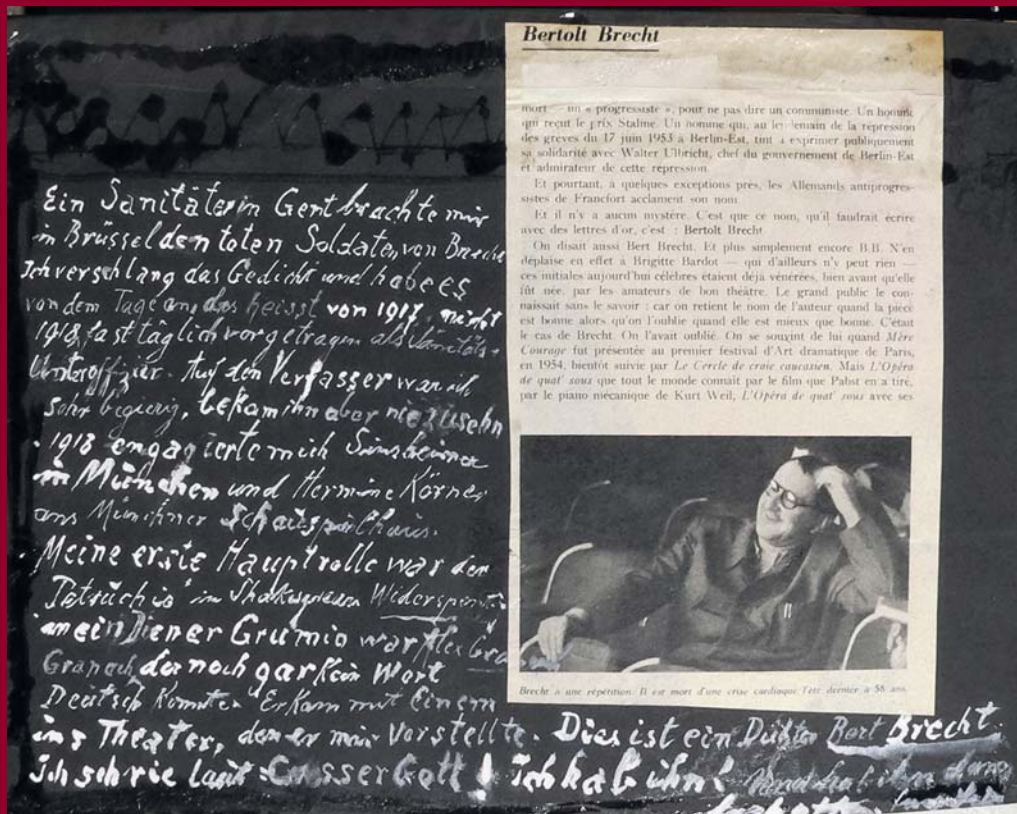 Ein Sanitäter in Gent brachte mir
in Brüssel den toten Soldaten von Brecht
Ich verschlang das Gedicht und habe es
von dem Tage an das heisst von 1917, nicht
1918, fast täglich vorgetragen als Sanitäts-
Unteroffizier. Auf den Verfasser war ich
sehr begierig, bekam ihn aber nie zu sehn
. 1918 engagierte mich Sinsheimer
in München und Hermine Körner
ans Münchner Schauspielhaus.
Meine erste Hauptrolle war der
Petruchio in Shakespeares
mein Diener Grumio war Alex
Granach, der noch gar kein Wort
Deutsch konnte. Er kam mit Einem
ins Theater, den er mir vorstellte. Dies ist ein Dichter Bert Brecht.
Ich schrie laut: Grosser Gott! Ich hab ihn! Und hab ihn dann
Bertolt Brecht
mort — un « progressiste », pour ne pas dire un communiste. Un homme
qui reçut le prix Staline. Un homme qui, au lendemain de la répression
des grèves du 17 juin 1953 à Berlin-Est, tint à exprimer publiquement
sa solidarité avec Walter Ulbricht, chef du gouvernement de Berlin-Est
et admirateur de cette répression.
Et pourtant, à quelques exceptions près, les Allemands antiprogres-
sistes de Francfort acclament son nom.
Et il n'y a aucun mystère. C'est que ce nom, qu'il faudrait écrire
avec des lettres d'or, c'est : Bertolt Brecht.
On disait aussi Bert Brecht. Et plus simplement encore B.B. N'en
déplaise en effet à Brigitte Bardot — qui d'ailleurs n'y peut rien —
ces initiales aujourd'hui célèbres étaient déjà vénérées, bien avant qu'elle
fût née, par les amateurs de bon théâtre. Le grand public le con-
naissait sans le savoir : car on retient le nom de l'auteur quand la pièce
est bonne alors qu'on l'oublie quand elle est mieux que bonne. C'était
le cas de Brecht. On l'avait oublié. On se souvint de lui quand Mère
Courage fut présentée au premier festival d'Art dramatique de Paris,
en 1954, bientôt suivie par Le Cercle de craie caucasien. Mais L'Opéra
de quat' sous que tout le monde connaît par le film que Pabst en a tiré,
par le piano mécanique de Kurt Weil, L'Opéra de quat' sous avec ses
Brecht à une répétition. Il est mort d'une crise cardiaque l'été dernier à 58 ans.